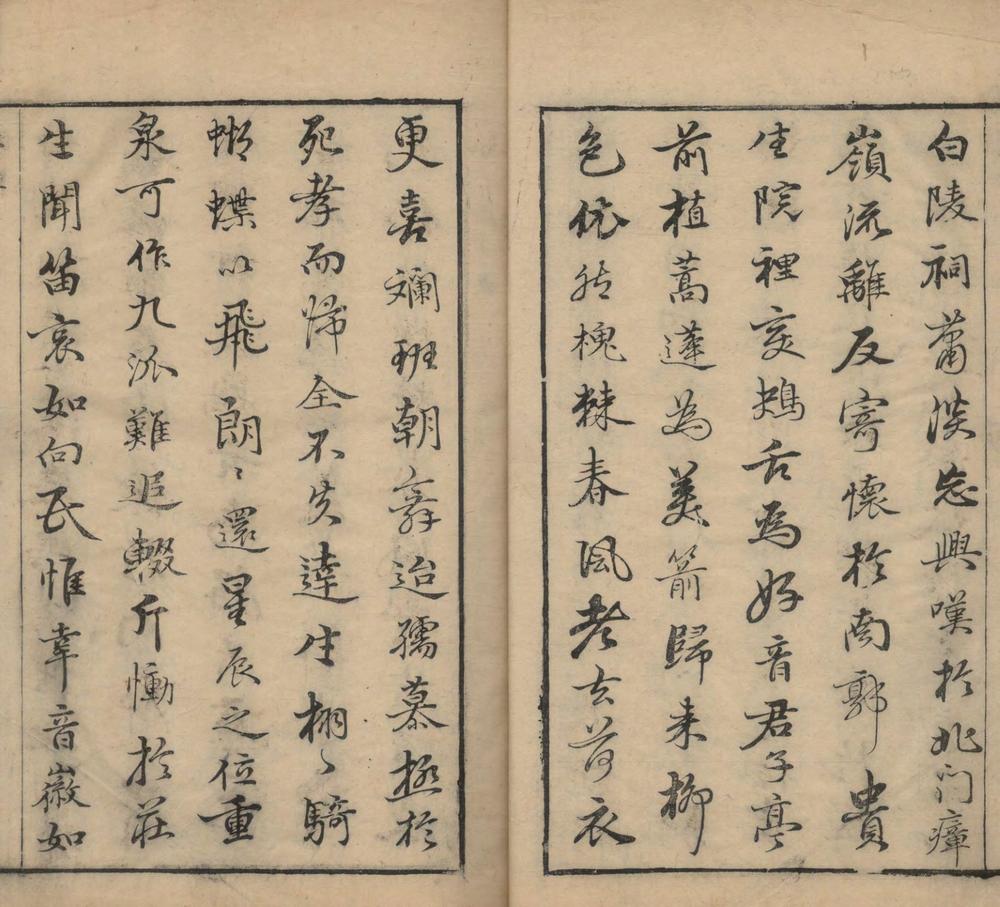 白陵祠蕭淡忽興嘆於北门瘴
嶺流離反寄懷於南郭貴
生院裡变鴂舌為好音君子亭
前植蒿蓬為美箭歸来柳
色依然槐棘春風老去荷衣
更嘉斓班朝辞迨孺慕極於
死孝而帰全不失達生栩〻騎
蝴蝶以飛朗〻還星辰之位重
泉可作九派難追輟斤慟於莊
生聞笛哀如向氏惟幸音徽如